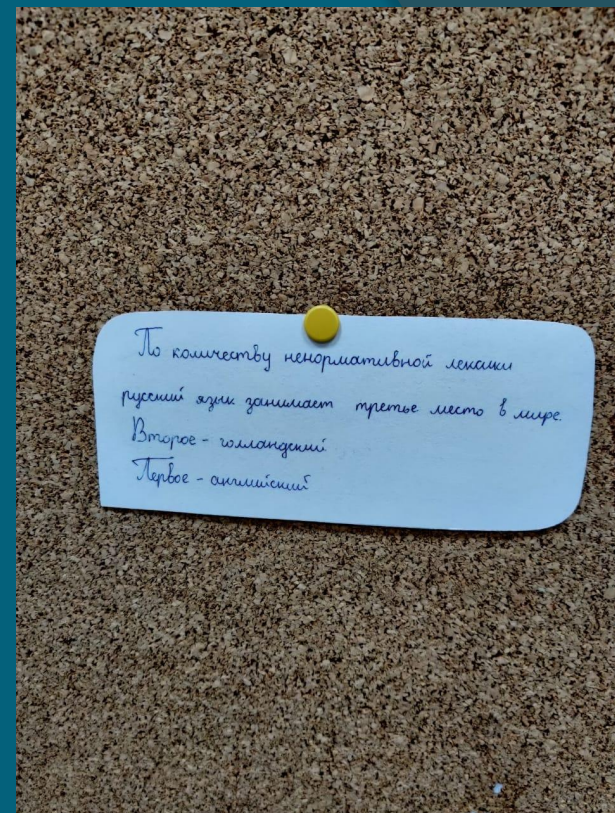 По количеству ненормативной лексики
русский язык занимает третье место в мире.
Второе - голландский
Первое - английский